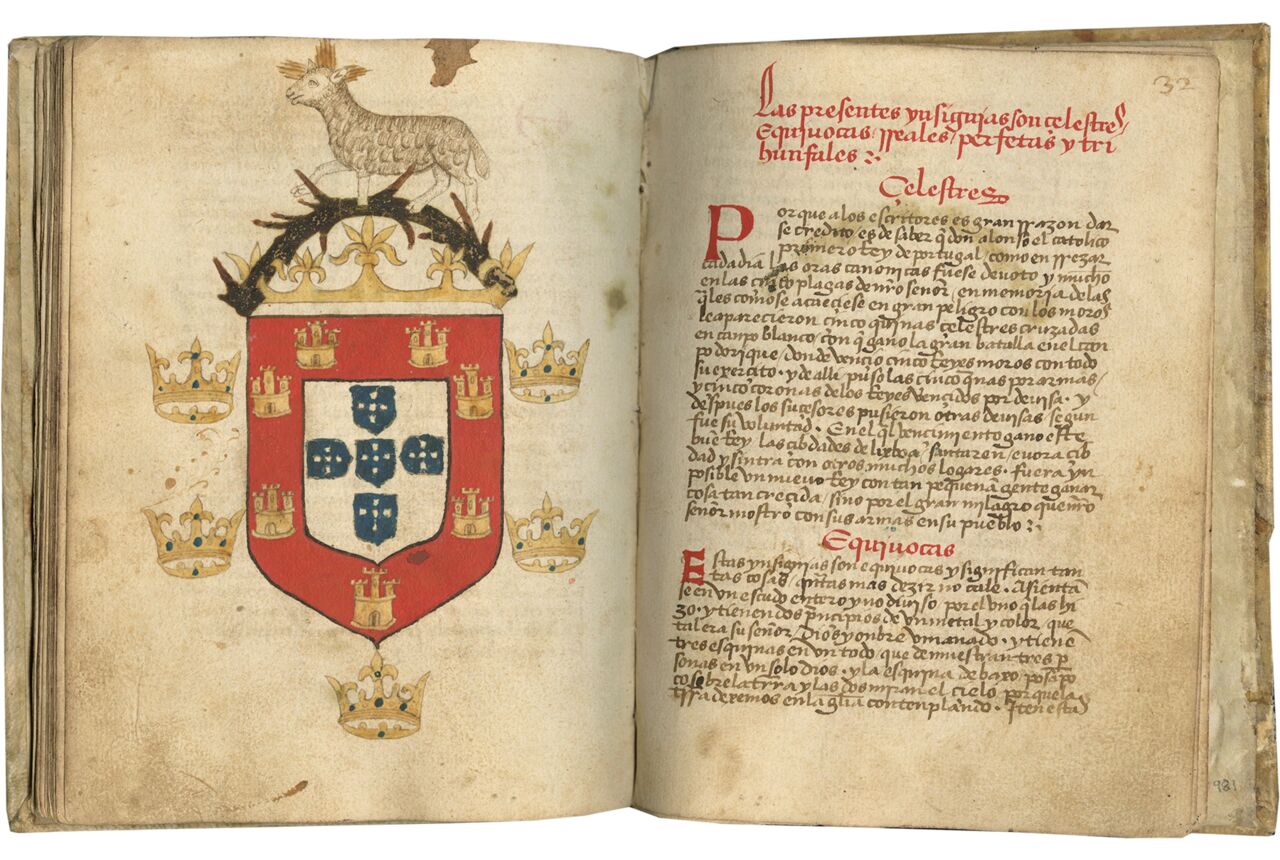 32
Las presentes ynsignias son celestres
Equivocas rreales perfetas y tri
hunfales :~
Celestres
Por que a los escritores es gran rrazon dar
se credito es de saber q̃ don alonso el catolico
primero Rey de portugal / como en rrezar
cada dia las oras canonicas fuese devoto y mucho
en las cinco plagas de nr̃o señor / en memoria de las
q̃les como se acaeciese en gran peligro con los moros
le aparecieron cinco quinas celestres cruzadas
en canpo blanco / con q̃ gano la gran batalla en el can
po dorique / donde vencio cinco Reyes moros con todo
su exercito . y de alli puso las cinco q̃nas por armas /
y cinco coronas de los Reyes vencidos por devisa . y
despues los sucesores pusieron otras devisas segun
fue su voluntad . En el q̃l vencimiento gano este
buẽ Rey las cibdades de lixboa / santaren / evora cib
dad y sintra con otros muchos logares . fuera yn
posible vn nuevo Rey con tan pequena gente ganar
cosa tan crecida / sino por el gran milagro que nr̃o
señor mostro con sus armas en su pueblo :~
Equivocas
Estas ynsignias son equivocas y significan tan
tas cosas / q̃ntas mas dezir no cale . Asienta
se en vn escudo entero y no diviso por el vno q̃ las hi
zo . y tienen dos prĩcipios de vn metal y color / que
tal era su señor / dios y onbre vmanado . y tiene
tres esquinas en vn todo / que demuestran tres p̃
sonas en vn solo dios . y la esquina de baxo
sobre la trr̃a y las dos miran el cielo por que la
en la gl̃ia contenplando . Iten esta
981